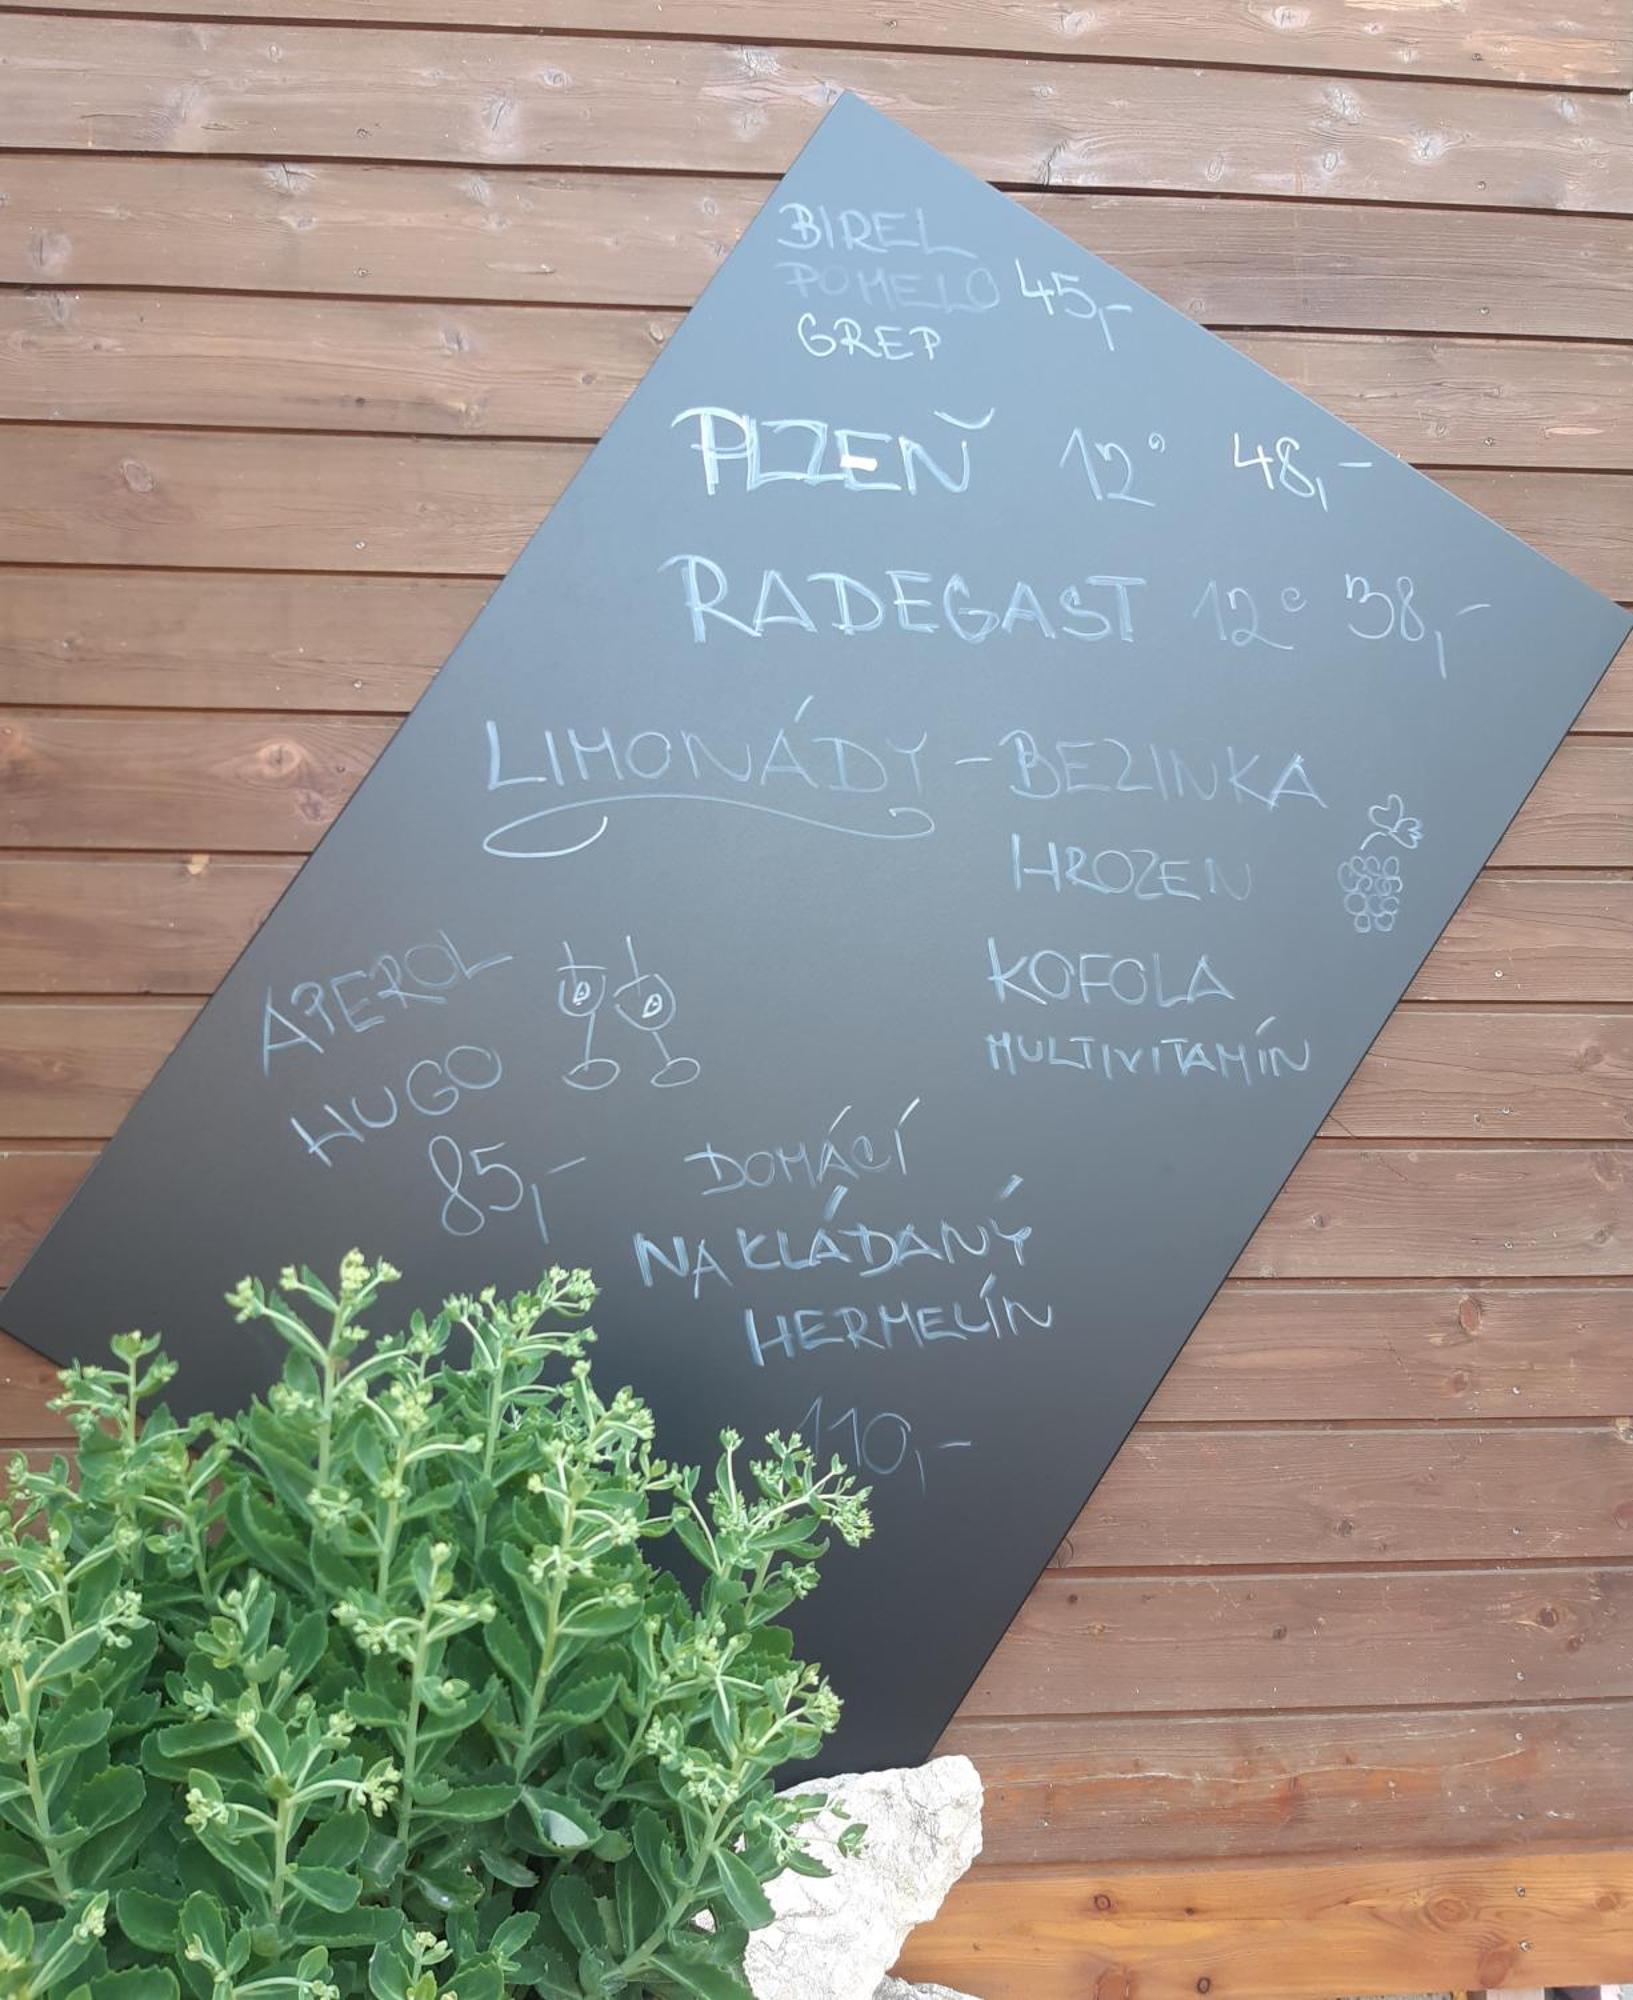 BIREL
POMELO 45,-
GREP
PLZEŇ 12° 48,-
RADEGAST 12° 38,-
LIMONÁDY - BEZINKA
HROZEN
KOFOLA
MULTIVITAMÍN
APEROL
HUGO
85,-
DOMÁCÍ
NAKLÁDANÝ
HERMELÍN
110,-